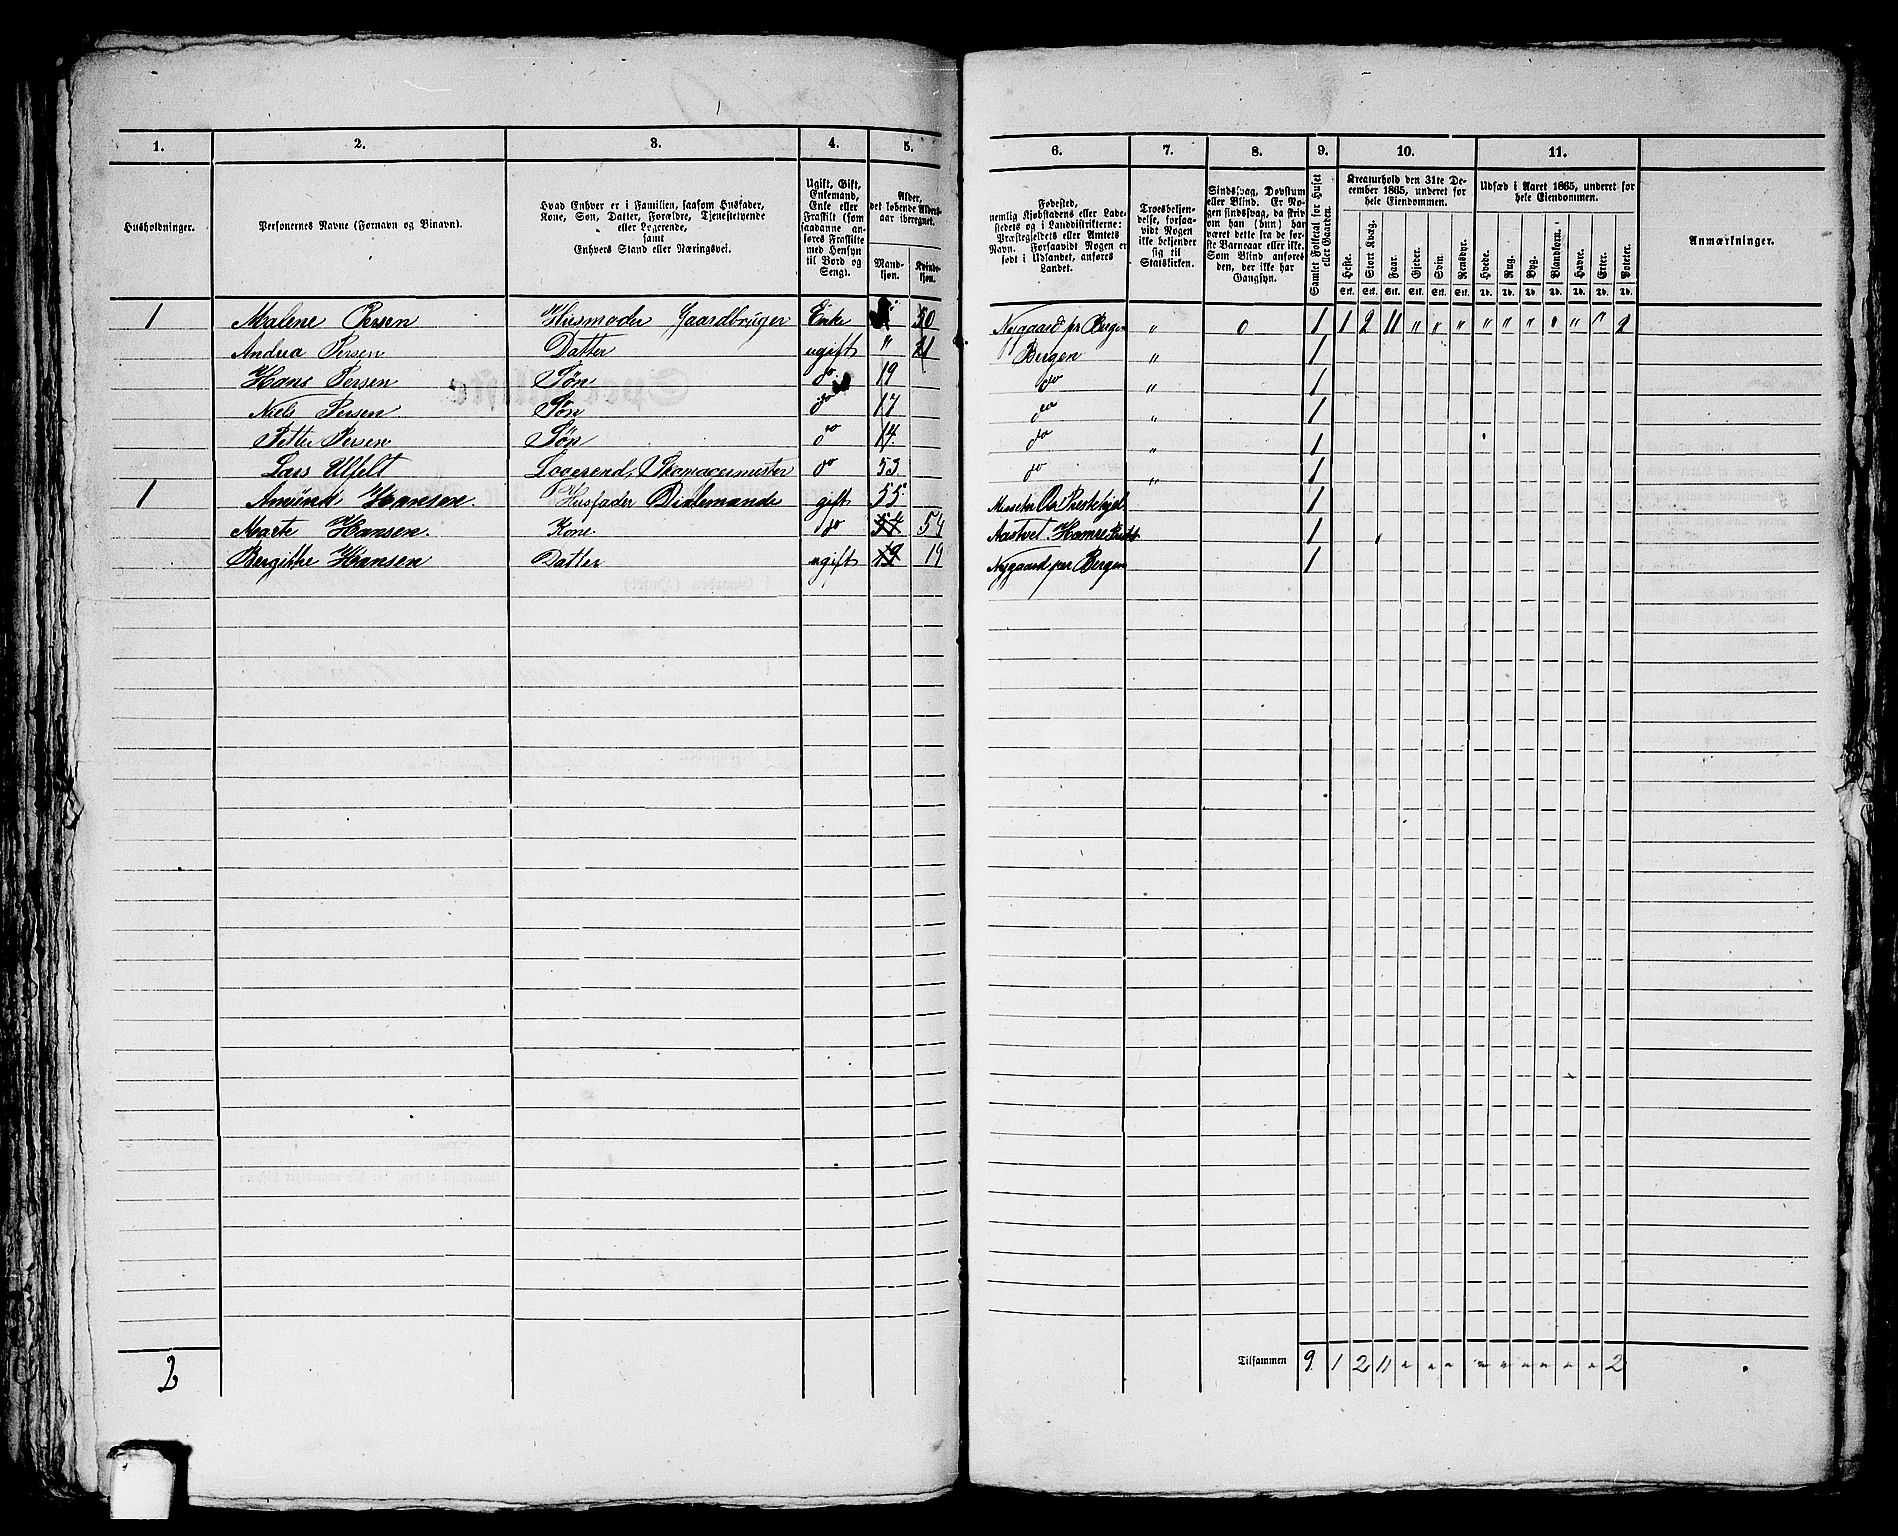 1. 2. 3. 4. 5. 6. 7. 8. 9. 10. 11.
Husholdninger.
Personernes Navne (Fornavn og Vinavn).
Hvad Enhver er i Familien, saasom Husfader, Kone, Søn, Datter, Forældre, Tjenestetyende eller Logerende, samt Enhvers Stand eller Næringsvei.
Ugift, Gift, Enkemand, Enke eller Fraskilt (som saadanne anføres Fraskilte med Hensyn til Bord og Seng).
Alder, det løbende Aldersaar iberegnet.
Mandkjøn. Kvindekjøn.
Fødested, nemlig Kjøbstadens eller Ladestedets og i Landdistrikterne: Præstegjeldets eller Amtets Navn. Forsaavidt Nogen er født i Udlandet, anføres Landet.
Troesbekjendelse, forsaavidt Nogen ikke bekjender sig til Statskirken.
Sindssvag, Døvstum eller Blind. Er Nogen sindssvag, da skriv om han (hun) har været dette fra de første Barneaar eller ikke. Som Blind anføres den, der ikke har Gangsyn.
Samlet Folketal for Huset eller Gaarden.
Kreaturhold den 31te December 1865, underet for hele Eiendommen.
Heste. Stort Kvæg. Faar. Gjeder. Svin. Rensdyr.
Stk. Stk. Stk. Stk. Stk. Stk.
Udsæd i Aaret 1865, underet for hele Eiendommen.
Hvede. Rug. Byg. Blandkorn. Havre. Erter. Poteter.
Td. Td. Td. Td. Td. Td. Td.
Anmærkninger.
1 Malene Persen Husmoder Gaardbruger Enke 50 Nygaard pr Bergen " 0 1 1 2 11 " " " " " " " " " 2
Andrea Persen Datter ugift " 21 Bergen " 1
Hans Persen Søn do 19 do " 1
Niels Persen Søn do 17 do " 1
Petter Persen Søn do 14 do " 1
Lars Ulfelt Logerend, Skomagermester do 53 do " 1
1 Hansen. Husfader gift 55 1
Marte Hansen. Kone do 54 54 Hamre 1
Bergithe Hansen Datter ugift 19 19 Nygaard per Bergen 1
2 Tilsammen 9 1 2 11 " " " " " " " " " 2